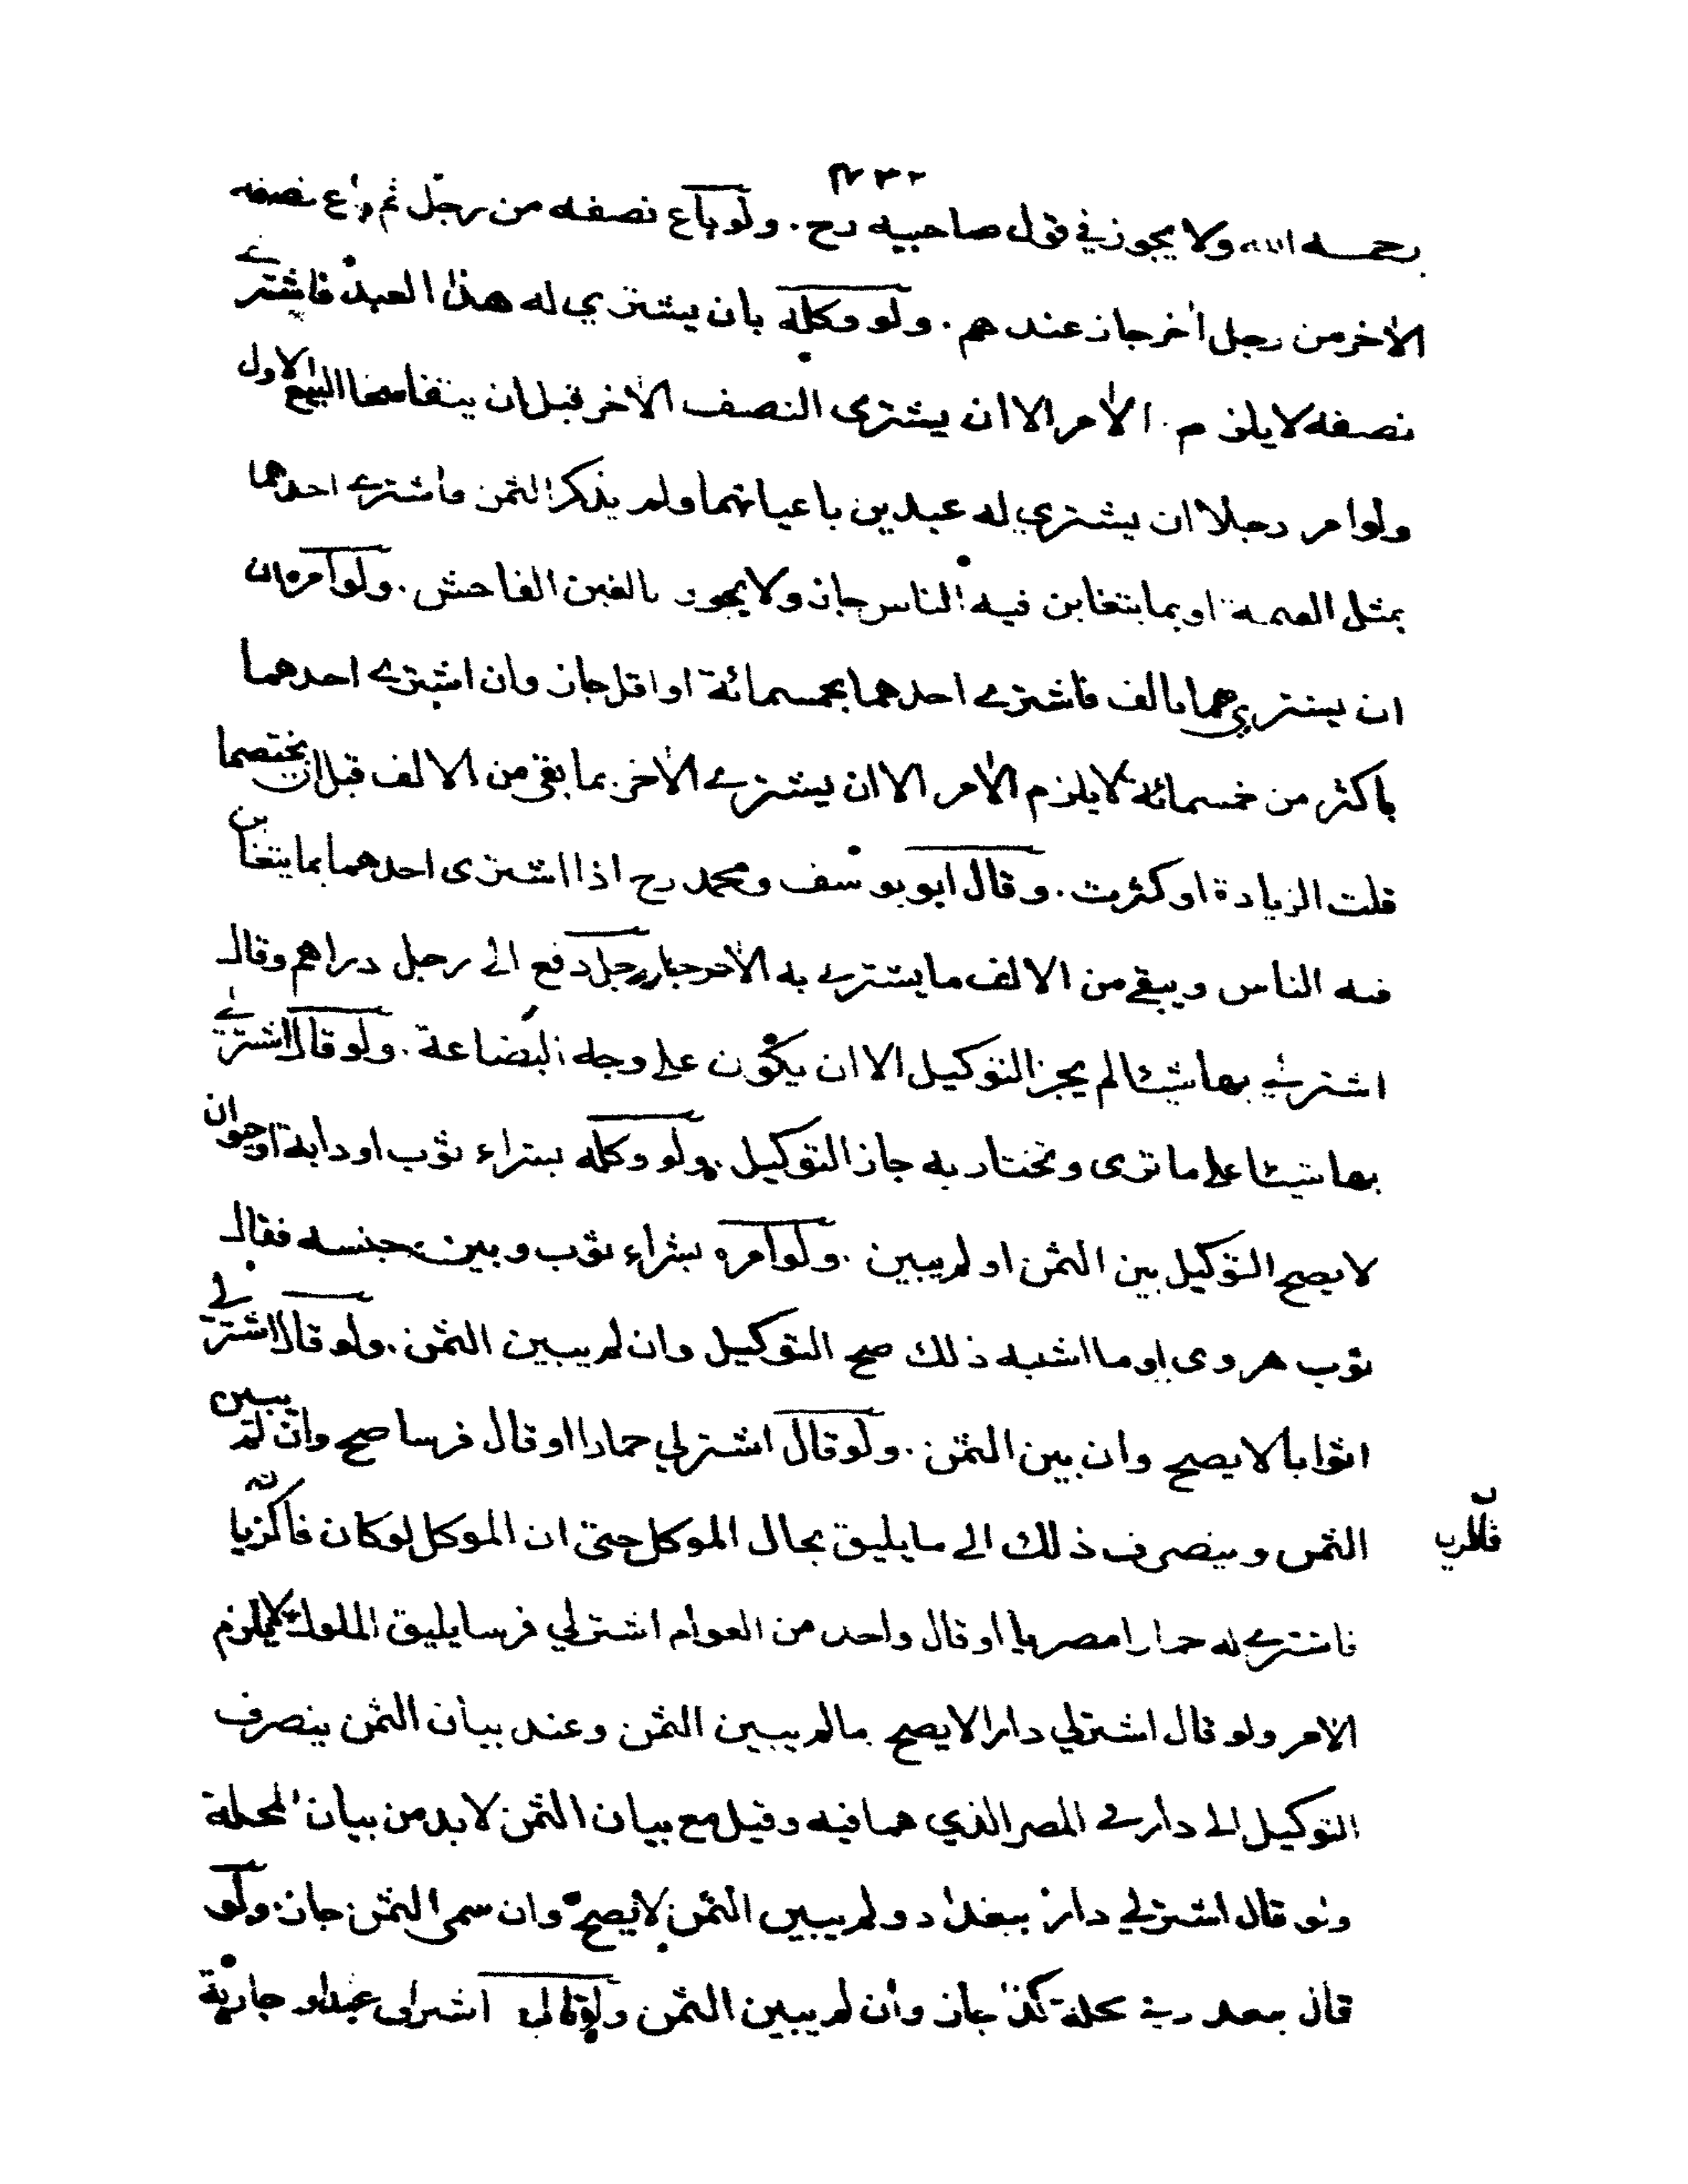 ٢٣٢
رحمه الله ولا يجوز في قول صاحبيه رح . ولو باع نصفه من رجل ثم باع نصفه
الآخر من رجل آخر جاز عندهم . ولو وكله بان يشتري له هذا العبد فاشترى
نصفه لا يلزم الآمر الا ان يشترى النصف الآخر قبل ان يتفاسخا البيع الاول
ولو امر رجلا ان يشتري له عبدين باعيانهما ولم يذكر الثمن فاشترى احدهما
بمثل القيمة او بما يتغابن فيه الناس جاز ولا يجوز بالغبن الفاحش . ولو امره بان
ان يشتريهما بالف فاشترى احدهما بخمسمائة او اقل جاز وان اشترى احدهما
باكثر من خمسمائة لا يلزم الآمر الا ان يشترى الآخر بما بقى من الالف قبل ان يختصما
قلت الزيادة او كثرت . وقال ابو يوسف ومحمد رح اذا اشترى احدهما بما يتغابن
فيه الناس ويبقى من الالف ما يشترى به الآخر جاز رجل دفع الى رجل دراهم وقال
اشتر لي بها شيئا لم يجز التوكيل الا ان يكون على وجه البضاعة . ولو قال اشتر لي
بها شيئا على ما ترى وتختار به جاز التوكيل . ولو وكله بشراء ثوب او دابة او حيوان
لا يصح التوكيل بين الثمن او لم يبين . ولو امره بشراء ثوب وبين جنسه فقال
ثوب هروى او ما اشبه ذلك صح التوكيل وان لم يبين الثمن . ولو قال اشتر لي
اثوابا لا يصح وان بين الثمن . ولو قال اشتر لي حمارا او قال فرسا صح وان لم يبين
الثمن وينصرف ذلك الى ما يليق بحال الموكل حتى ان الموكل لو كان
فاشترى له حمارا مصريا او قال واحد من العوام اشتر لي فرسا يليق الملوك لا يلزم
الآمر ولو قال اشتر لي دارا لا يصح ما لم يبين الثمن وعند بيان الثمن ينصرف
التوكيل الى دار في المصر الذي هما فيه وقيل مع بيان الثمن لا بد من بيان المحلة
ولو قال اشتر لي دارا ببغداد ولم يبين الثمن لا يصح وان سمى الثمن جاز . ولو
قال ببغداد في محلة كذا جاز وان لم يبين الثمن ولو قال اشتر لي عبدا او جارية